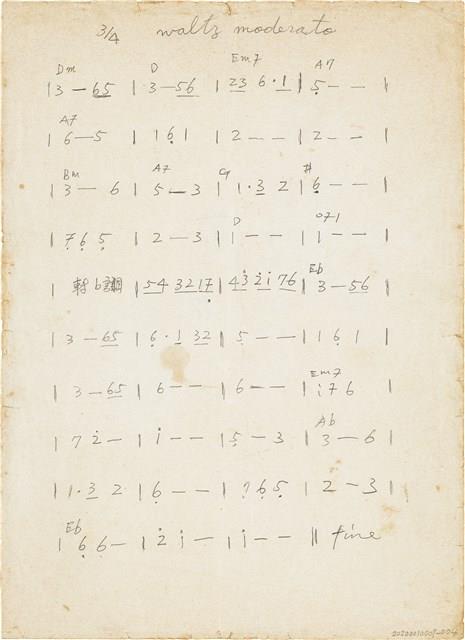 3/4 waltz moderato
Dm D Em7 A7
| 3 — 65 | 3 — 56 | 23 6·1 | 5 — — |
A7
| 6 — 5 | 1 6 1 | 2 — — | 2 — — |
Bm A7 #
| 3 — 6 | 5 — 3 | 1·3 2 | 6 — — |
D
| 7 6 5 | 2 — 3 | 1 — — | 1 — — |
Eb
| 轉b調 | 54 3217 | 43 21 76 | 3 — 56 |
| 3 — 65 | 6·1 32 | 5 — — | 1 6 1 |
Em7
| 3 — 65 | 6 — — | 6 — — | i 7 6 |
Ab
| 7 2 — | i — — | 5 — 3 | 3 — 6 |
| 1·3 2 | 6 — — | 7 6 5 | 2 — 3 |
Eb
| 6 6 — | 2 i — | i — — || fine